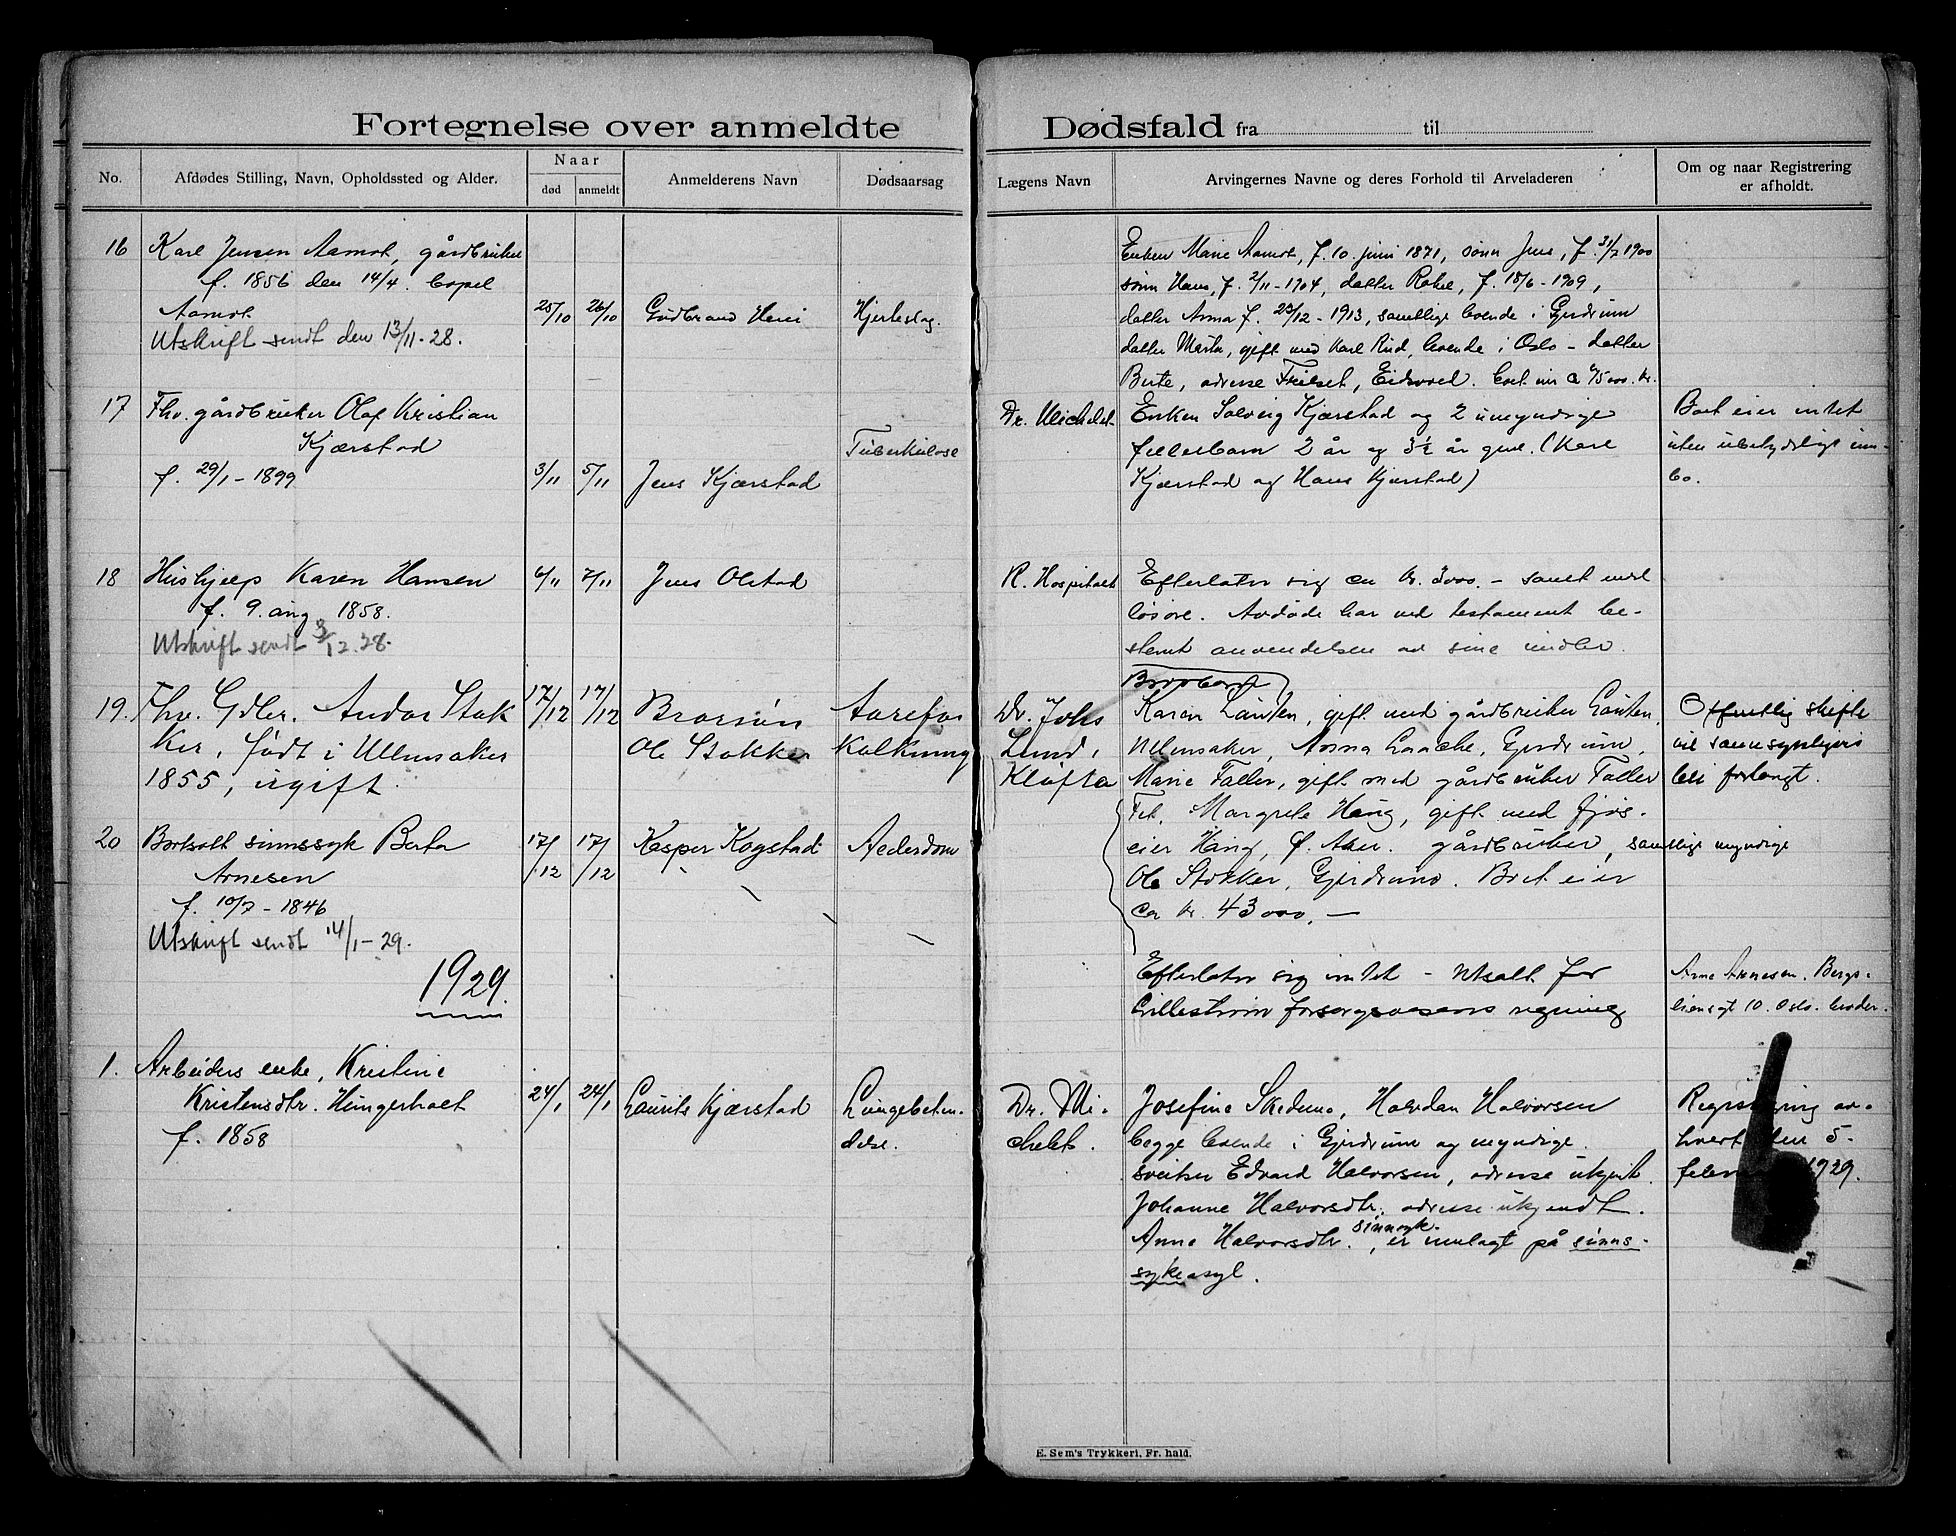 Fortegnelse over anmeldte Dødsfald fra til
No.
Afdødes Stilling, Navn, Opholdssted og Alder.
Naar
død
anmeldt
Anmelderens Navn
Dødsaarsag
Lægens Navn
Arvingernes Navne og deres Forhold til Arveladeren
Om og naar Registrering
er afholdt.
16
Karl Jensen Aamot, gårdbruker
f. 1856 den 14/4.
Aamot
Utskrift sendt den 13/11-28.
25/10
26/10
Gudbrand
Hjerteslag.
Enken Marie Aamot, f. 10 juni 1871, sønn Jens, f. 31/7 1900
sønn Hans, f. 2/11-1904, datter Rakel, f. 18/6-1909,
datter Anna f. 23/12-1913, samtlige boende i Gjerdrum
datter Marta, gift med Karl Rud, boende i Oslo - datter
Berte, adresse Frilset, Eidsvoll. boet eier ca 75000. kr.
17
Fhv. gårdbruker Olaf Kristian
Kjærstad
f. 29/1-1899
3/11
5/11
Jens Kjærstad
Tuberkulose
Dr. Michelet
Enken Solveig Kjærstad og 2 umyndige
fellesbarn 2 år og 3½ år gml. (Karl
Kjærstad og Hans Kjærstad)
Boet eier intet
uten ubetydelige inn-
bo.
18
Hushjelp Karen Hansen
f. 9. aug 1858.
Utskrift sendt 3/12.28.
6/11
7/11
Jens Olstad
R. Hospitalet
Efterlater sig ca kr. 3000.- samt endel
løsøre. Avdøde har ved testament be-
stemt anvendelsen av sine midler.
19.
Fhv. Gdbr. Andor Stok
ker, født i Ullensaker
1855, ugift.
17/12
17/12
Brorsønn
Ole Stokker
Aarefor
kalkning
Dr. Johs
Lund,
Kløfta
Brorbarn
Karen Lauten, gift med gårdbruker Lauten,
Ullensaker, Anna Laache, Gjerdrum,
Marie Faller, gift med gårdbruker Faller
Fet, Margrete Haug, gift med
eier Haug, Ø. Aker. gårdbruker, samtlige myndige
Ole Stokker, Gjerdrum. Boet eier
ca kr. 43000,-
Offentlig skifte
vil sannsynligvis
bli forlangt.
20
Bortsatt sinnssyk Berta
Arnesen
f. 10/7-1846
Utskrift sendt 14/1-29.
17/12
17/12
Kasper Kogstad
Alderdom
Efterlater sig intet - utsatt for
Lillestrøm forsorgsvesens regning
Arne Arnesen. Bergs-
liensgt 10. Oslo. broder.
1929.
1.
Arbeiders enke, Kristine
Kristensdtr. Hungerholt
f. 1858
24/1
24/1
Laurits Kjærstad
Lungebeten-
delse.
Dr. Mi-
chelet.
Josefine Skedsmo, Halvdan Halvorsen
begge boende i Gjerdrum og myndige.
sveitser Edvard Halvorsen, adresse ukjent.
Johanne Halvorsdtr. adresse ukjendt.
Anna Halvorsdtr. sinnsyk., er innlagt på sinns-
sykeasyl.
Registrering av-
hvert den 5-
1929.
E. Sem's Trykkeri, Fr. hald.